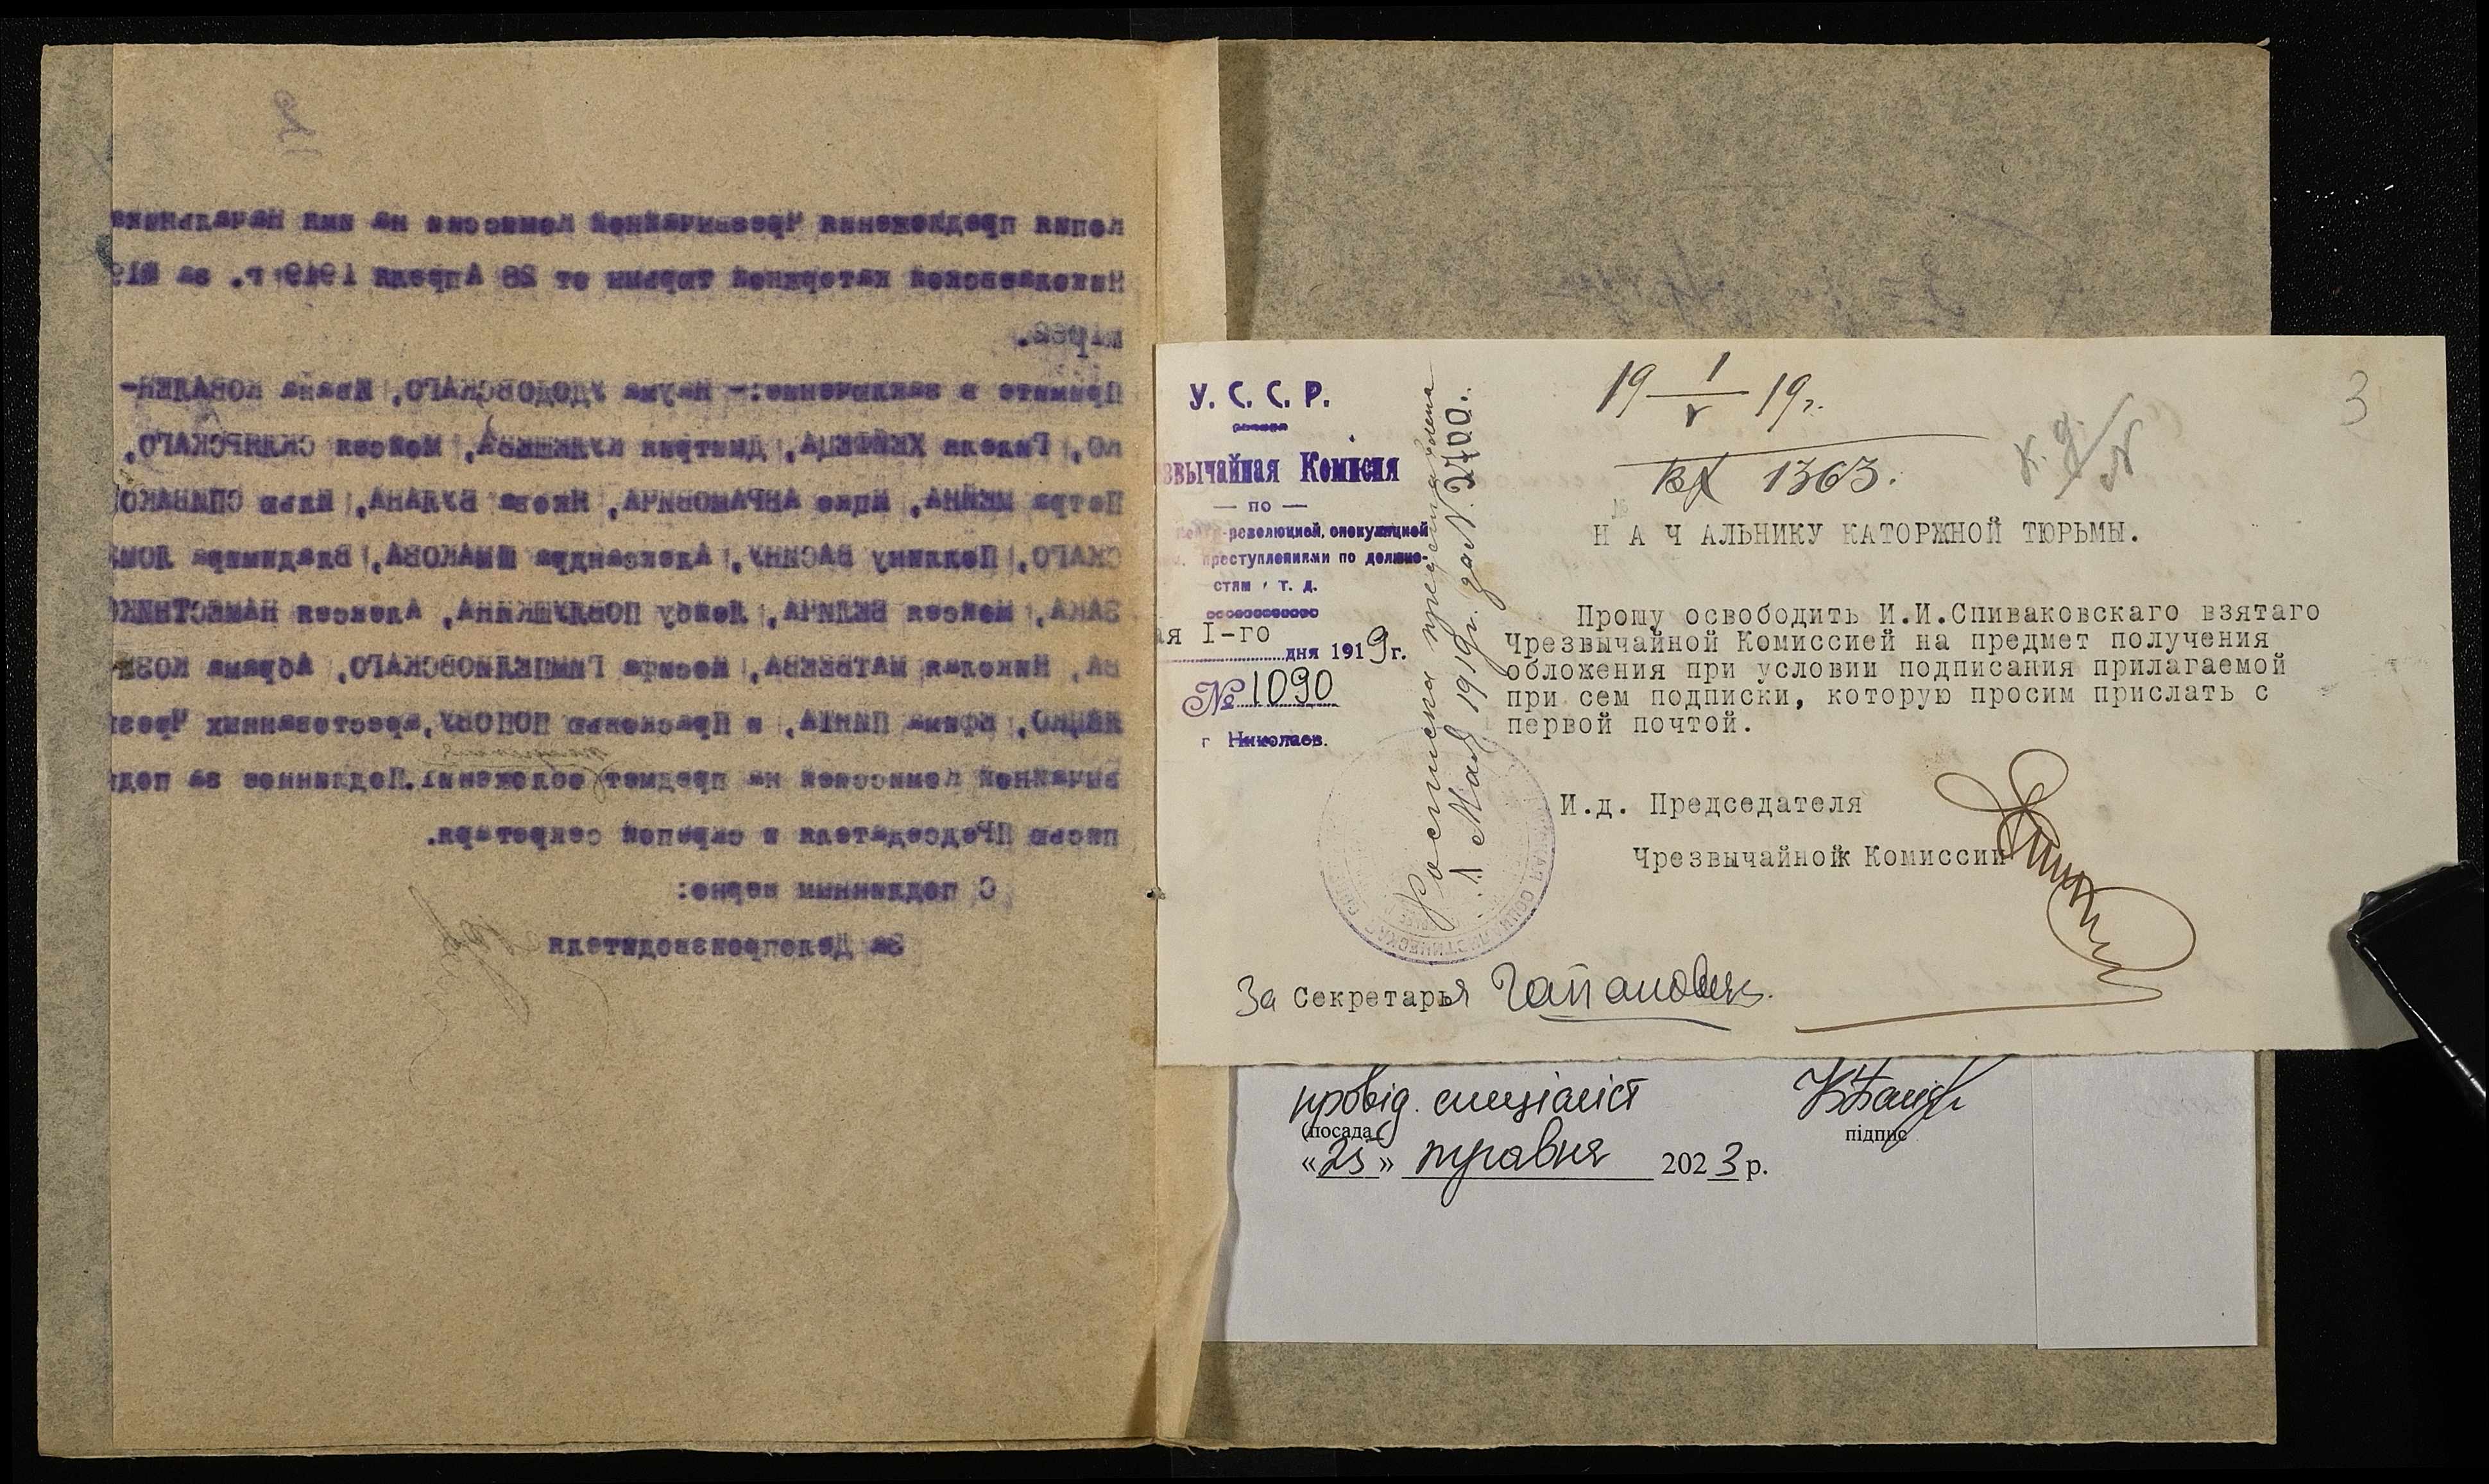 Копия предложения Чрезвычайной Комиссии на имя Начальника
Николаевской каторжной тюрьмы от 28 Апреля 1919 г. за №
Примите в заключение:- Наума УДОДОВСКАГО, Ивана КОВАЛЕН-
КО, Гилеля ХЕЙФЕЦА, Дмитрия КУДЯШЕВА, Мойсея СКЛЯРСКАГО,
Петра МЕЙНА, Ицко АБРАМОВИЧА, Якова БУДАНА, Илью СПИВАКОВ
СКАГО, Пелагию ВАСИНУ, Александра ШМАКОВА, Владимира
ЗАКА, Мойсея БЕЛИЧА, Лейбу ПОВДУШКИНА, Алексея НАМЕСТНИКО
ВА, Николая МАТВЕЕВА, Иосифа ГИМПЕЛИОВСКАГО, Абрама
Ефима ПИНТА, и Прасковью ПОПОВУ, арестованных Чрез
вычайной Комиссией на предмет обложения. Подлинное за под
писью ПРедседателя и скрепой секретаря.
С подлинным верно:
За Делопроизводителя
У. С. С. Р.
звычайная Комисия
— по —
-революцией, спекуляцией
преступлениями по должно-
стям т. д.
ая I-го
дня 1919 г.
№ 1090
г Николаев.
Расписка препровождена
1 Мая 1919 г. за N. 2700.
19 1/V 19 г.
вх 1363.
3
Н А Ч АЛЬНИКУ КАТОРЖНОЙ ТЮРЬМЫ.
Прошу освободить И.И.Спиваковскаго взятаго
Чрезвычайной Комиссией на предмет получения
обложения при условии подписания прилагаемой
при сем подписки, которую просим прислать с
первой почтой.
И.д. Председателя
Чрезвычайной Комиссии
За Секретаря
провід. спеціаліст
(посада)
підпис
«25» травня 2023 р.